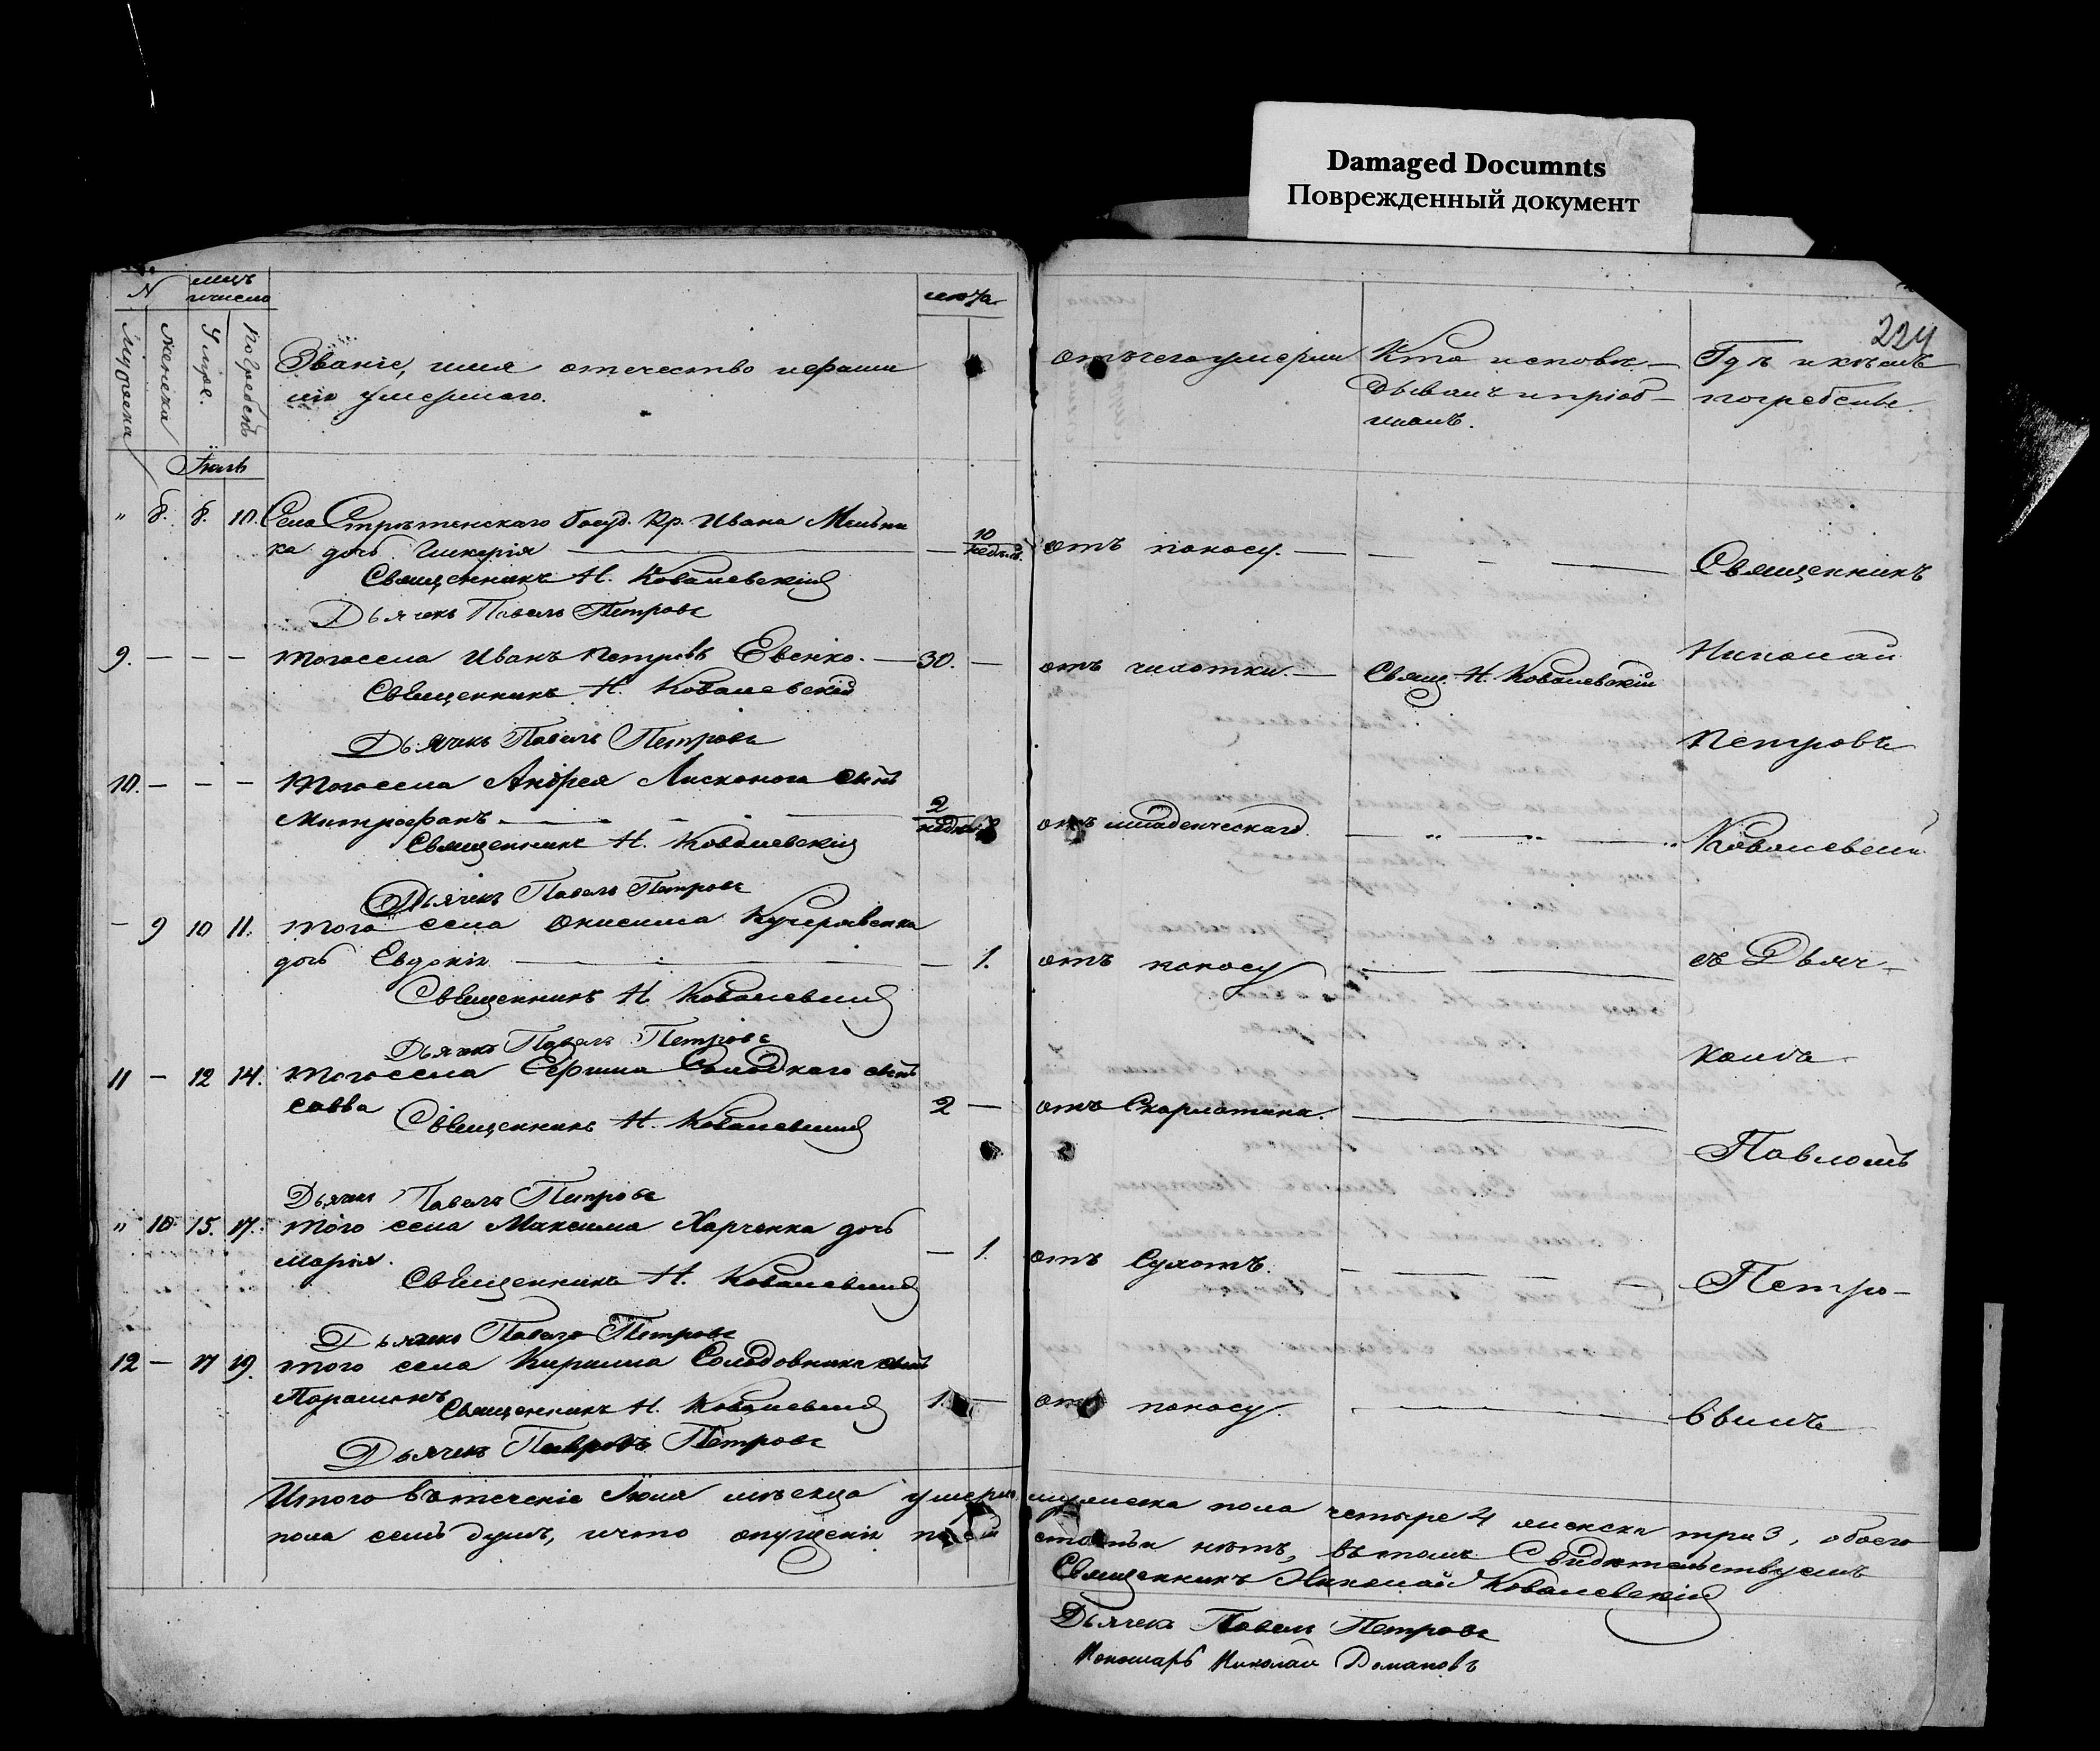 Damaged Documnts
Поврежденный документ
224
N
мсць
и число
лета
Мужеска
Женска
Умер.
Погребен
Званіе, имя отечество и фами
лія умершаго.
отъ чего умерли
Кто исповѣ-
дывалъ и пріоб-
щалъ.
Гдѣ и кѣмъ
погребены.
Іюль
" 8. 8. 10. Села Стрѣтенскаго Госуд. Кр. Ивана Мельни
ка дочь Гликерія — 10 недѣль отъ поносу. —
Священникъ Н. Ковалевскій
Дьячекъ Павелъ Петровъ
9. — — — того села Иванъ Петровъ Евенко. — 30. — отъ чихотки. — Свящ. Н. Ковалевскій
Священникъ Н. Ковалевскій
Дьячекъ Павелъ Петровъ
10. — — — того села Андрея сынъ
Митрофанъ — 2 отъ младенческаго.
Священникъ Н. Ковалевскій
Дьячекъ Павелъ Петровъ
— 9 10 11. того села Онисима Кучерявенка
дочь Евдокія — 1. отъ поносу
Священникъ Н. Ковалевскій
Дьячекъ Павелъ Петровъ
11 — 12 14. того села сынъ
Савва 2 — отъ Скарлатина.
Священникъ Н. Ковалевскій
Дьячекъ Павелъ Петровъ
" 10. 15. 17. того села Максима Харченка дочь
Марія. — 1. отъ Сухотъ.
Священникъ Н. Ковалевскій
Дьячекъ Павелъ Петровъ
12 — 17 19. того села Кирилла Солодовника сынъ
1. — отъ поносу.
Священникъ Н. Ковалевскій
Дьячекъ Петровъ
Священникъ
Николай
Петровъ
Ковалевскій
съ Дьяч-
комъ
Павломъ
Петро-
вымъ
Итого въ теченіе Іюля мѣсяца умерло мужеска пола четыре 4 женска три 3, обоего
пола семь душъ, и что опущенія нѣтъ, въ томъ Свидѣтельствуемъ
Священникъ Николай Ковалевскій
Дьячекъ Павелъ Петровъ
Пономарь Николай Романовъ